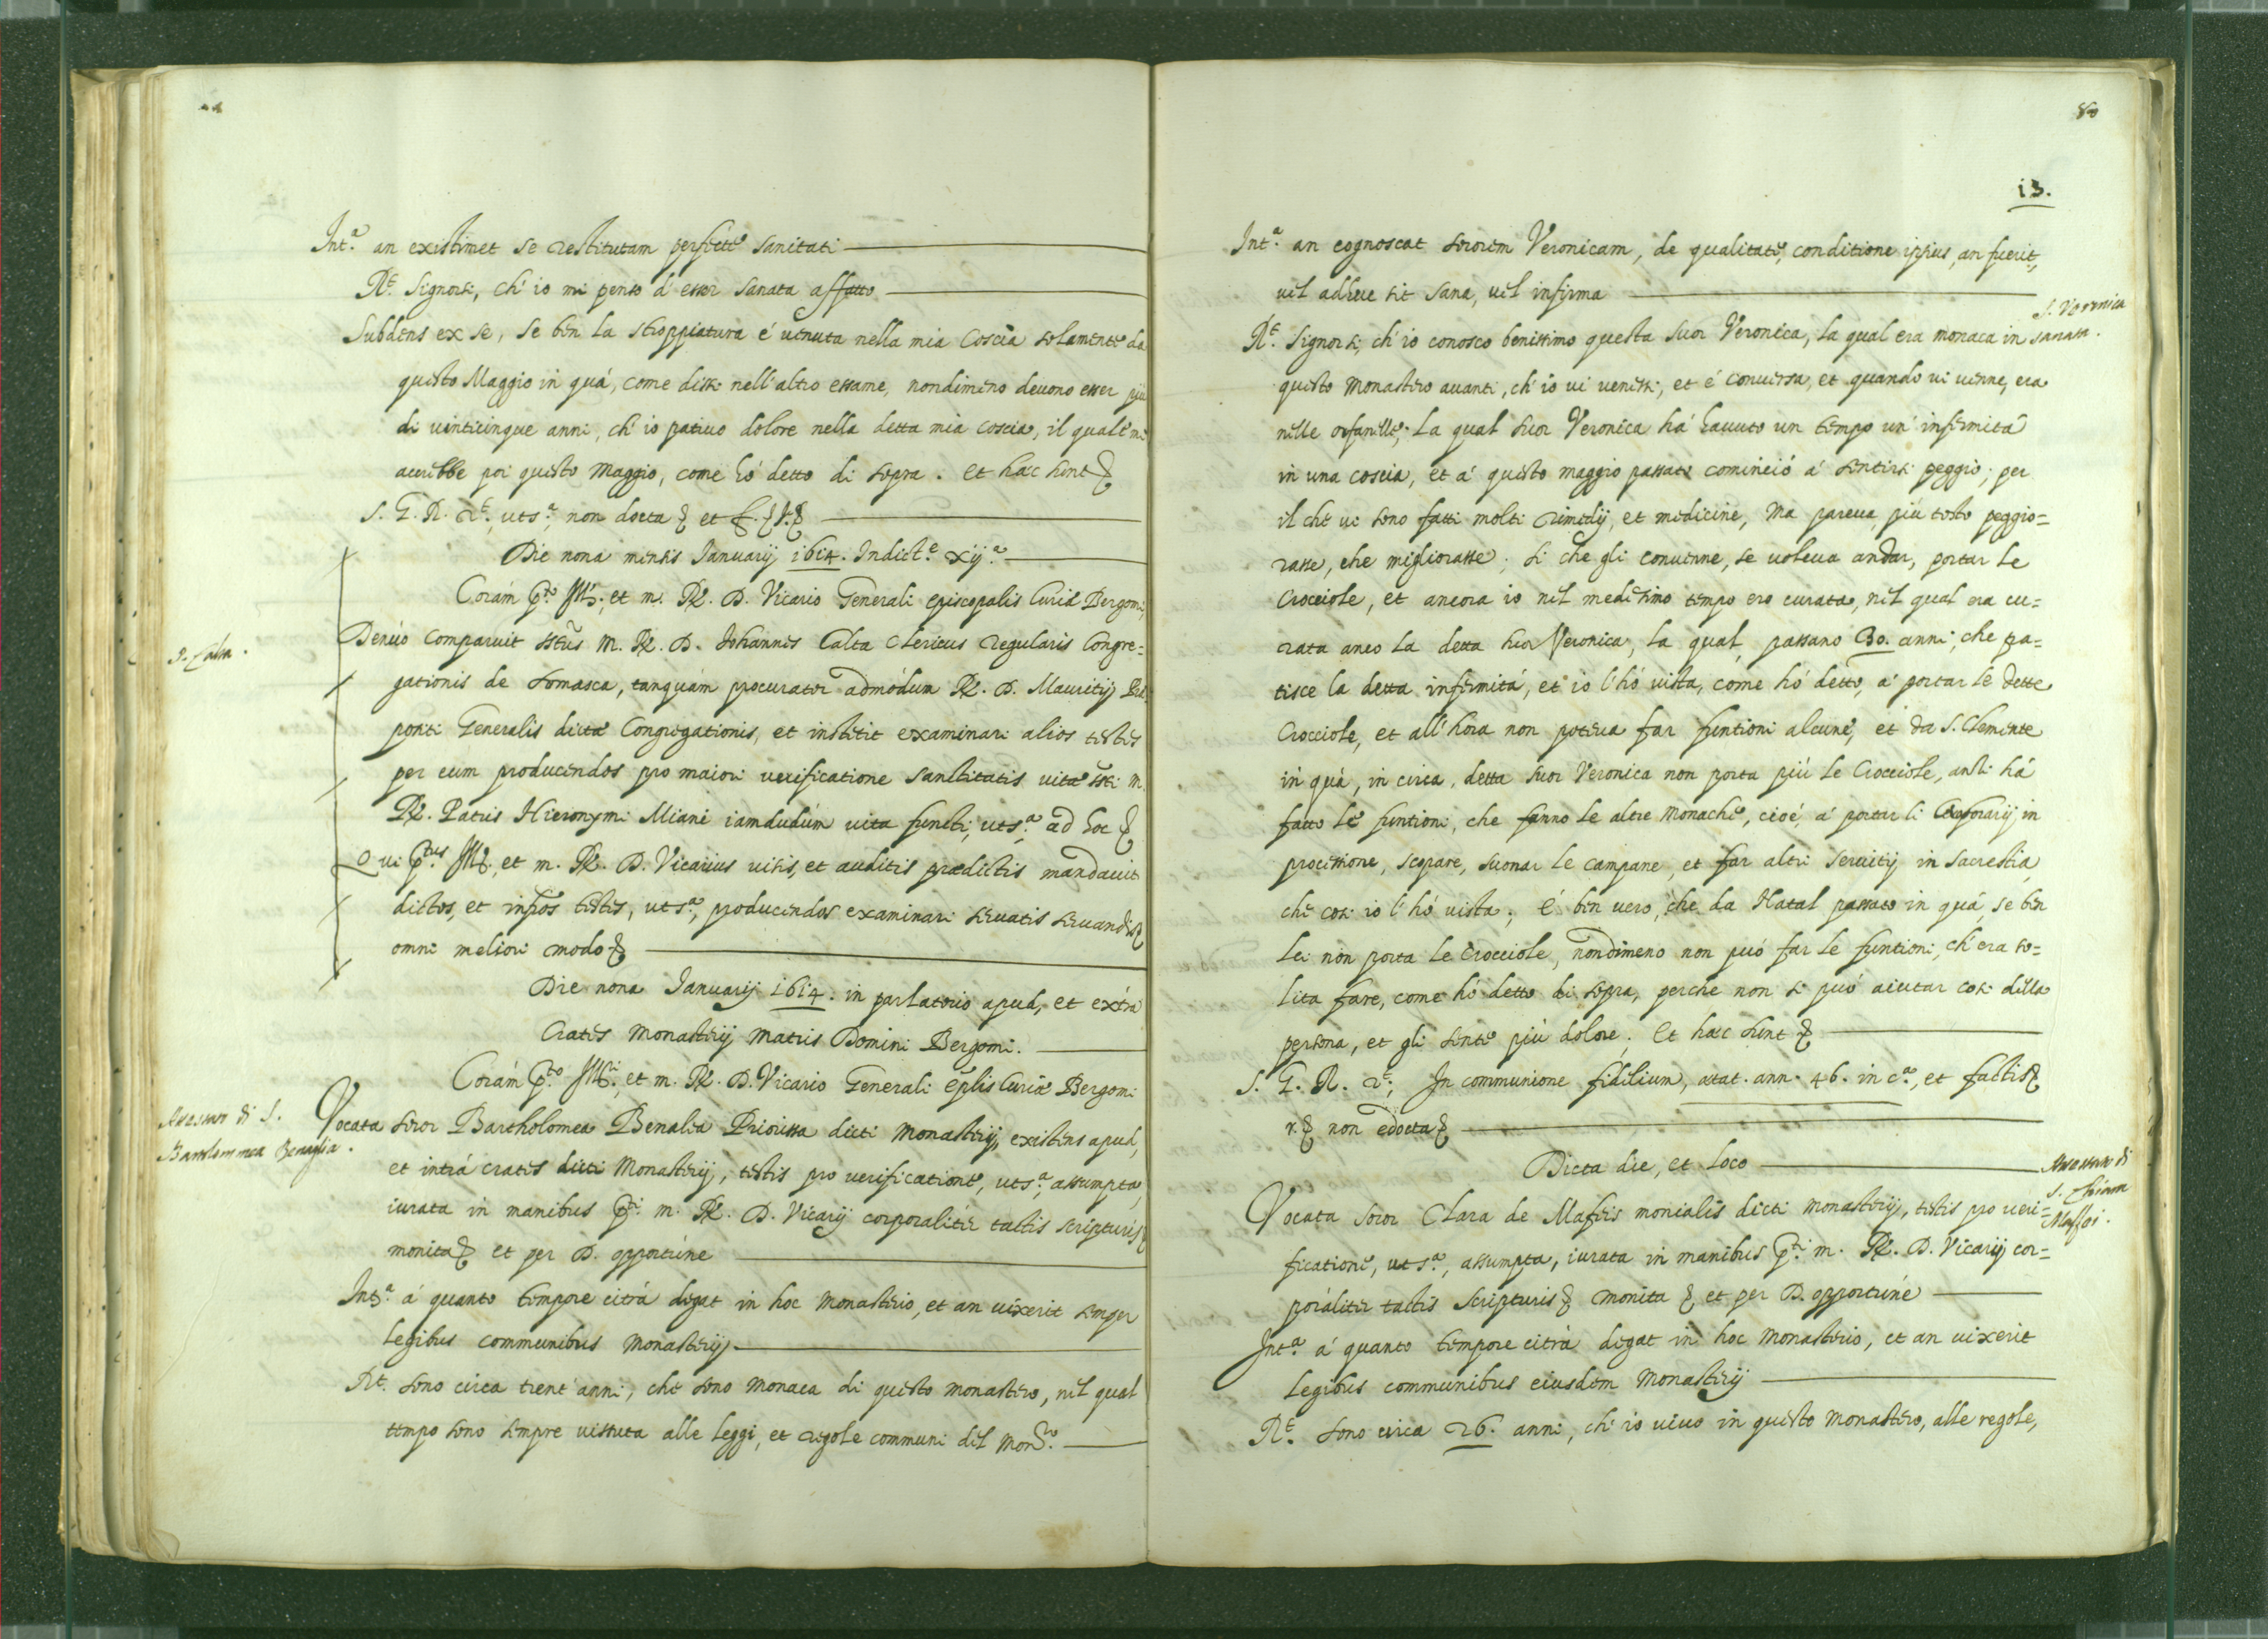 Int.ª an existimet se restitutam perfectè sanitati
R.t Signorsi, ch'io mi penso d'esser sanata affatto
Subdens ex se, se ben la stroppiatura é uenuta nella mia coscia solamente da
questo Maggio in quá, come dissi nell'altro essame, nondimeno deuono esser più
di uinticinque anni, ch'io patiuo dolore nella detta mia coscia, il quale mi
accrebbe poi questo Maggio, come hó detto di sopra. et hæc sunt
S. G. R. r.t, uts.ª, non docta et
Die nona mensis Ianuarij 1614. Indict.e xij.ª
Corám p.to Ill., et m. R. D. Vicario Generali episcopalis Curiæ Bergomi,
Denúo comparuit m. R. D. Iohannes Calta Clericus regularis Congre=
P. Calta.
gationis de Somasca, tanquám procurator admódum R. D. Mauritij Præ
positi Generalis dictæ Congregationis, et institit examinari alios testes
per eum producendos pro maiori uerificatione sanctitatis uitæ m.
R. Patris Hieronymi Miani iamdudúm uita functi, uts.ª ad hoc
Qui p.tus Ill., et m. R. D. Vicarius uisis, et auditis prædictis mandauit
dictos, et infros testes, uts.ª, producendos examinari seruatis seruandis
omni meliori modo
Die nona Ianuarij 1614. in parlatorio apud, et extrá
crates Monasterij Matris Domini Bergomi.
Corám p.to Ill.ri, et m. R. D. Vicario Generali ep̃lis Curiæ Bergomi
Vocata soror Bartholomea Benalia Priorissa dicti Monasterij, existens apud,
di S.
Bartolommea Benaglia.
et intrá crates dicti Monasterij, testis pro uerificatione, uts.ª, assumpta,
iurata in manibus p.ti m. R. D. Vicarij corporalitér tactis scripturis
monita et per D. opportúne
Int.ª á quanto tempore citrá degat in hoc Monasterio, et an uixerit semper
legibus communibus Monasterij
R.t sono circa trent'anni, che sono monaca di questo monastero, nel qual
tempo sono sempre uissuta alle leggi, et regole communi del Mon.ro
80
13.
Int.ª an cognoscat sororem Veronicam, de qualitate, conditione ipsius, an fuerit,
uel adhuc sit sana, uel infirma
S. Veronica
sanata.
R.t Signorsi, ch'io conosco benissimo questa suor Veronica, la qual era monaca in
questo monastero auanti, ch'io ui uenissi, et é conuersa, et quando ui uenne, era
nelle orfanelle; La qual suor Veronica há hauuto un tempo un'infermità
in una coscia, et á questo maggio passato cominció á sentirsi peggio; per
il che ui sono fatti molti rimedij, et medicine, ma pareua, più tosto peggio=
rasse, che migliorasse; si che gli conuenne, se uoleua andar, portar le
Crocciole, et ancora io nel medesimo tempo ero curata, nel qual era cu=
rata anco la detta suor Veronica, la qual, passano 30. anni, che pa=
tisce la detta infermitá, et io l'hó uista, come hó detto, á portar le dette
Crocciole, et all'hora non poteua far funtioni alcune, et da S. Clemente
in quà, in circa, detta suor Veronica non porta più le Crocciole, ansi há
fatto le funtioni, che fanno le altre Monache, cioé, á portar li in
processione, scopare, suonar le campane, et far altri seruitij in sacrestia,
che cosi io l'hó uista; é ben uero, che da Natal passato in quá, se ben
lei non porta le crocciole, nondimeno non può far le funtioni, ch'era so=
lita fare, come hó detto di sopra, perche non si può aiutar cosi della
persona, et gli sente più dolore. Et hæc sunt
S. G. R. r.t, In communione fidelium, ætat. ann. 46. in c.ª, et factis
r. non edocta
Dicta die, et loco
di
S. Chiara
Maffei.
Vocata soror Clara de Mafeis monialis dicti monasterij, testis pro ueri=
ficatione, uts.ª, assumpta, iurata in manibus p.ti m. R. D. Vicarij cor=
poralitér tactis scripturis monita et per D. opportúne
Int.ª á quanto tempore citrà degat in hoc Monasterio, et an uixerit
legibus communibus eiusdem Monasterij
R.t sono circa 26. anni, ch'io uiuo in questo monastero, alle regole,